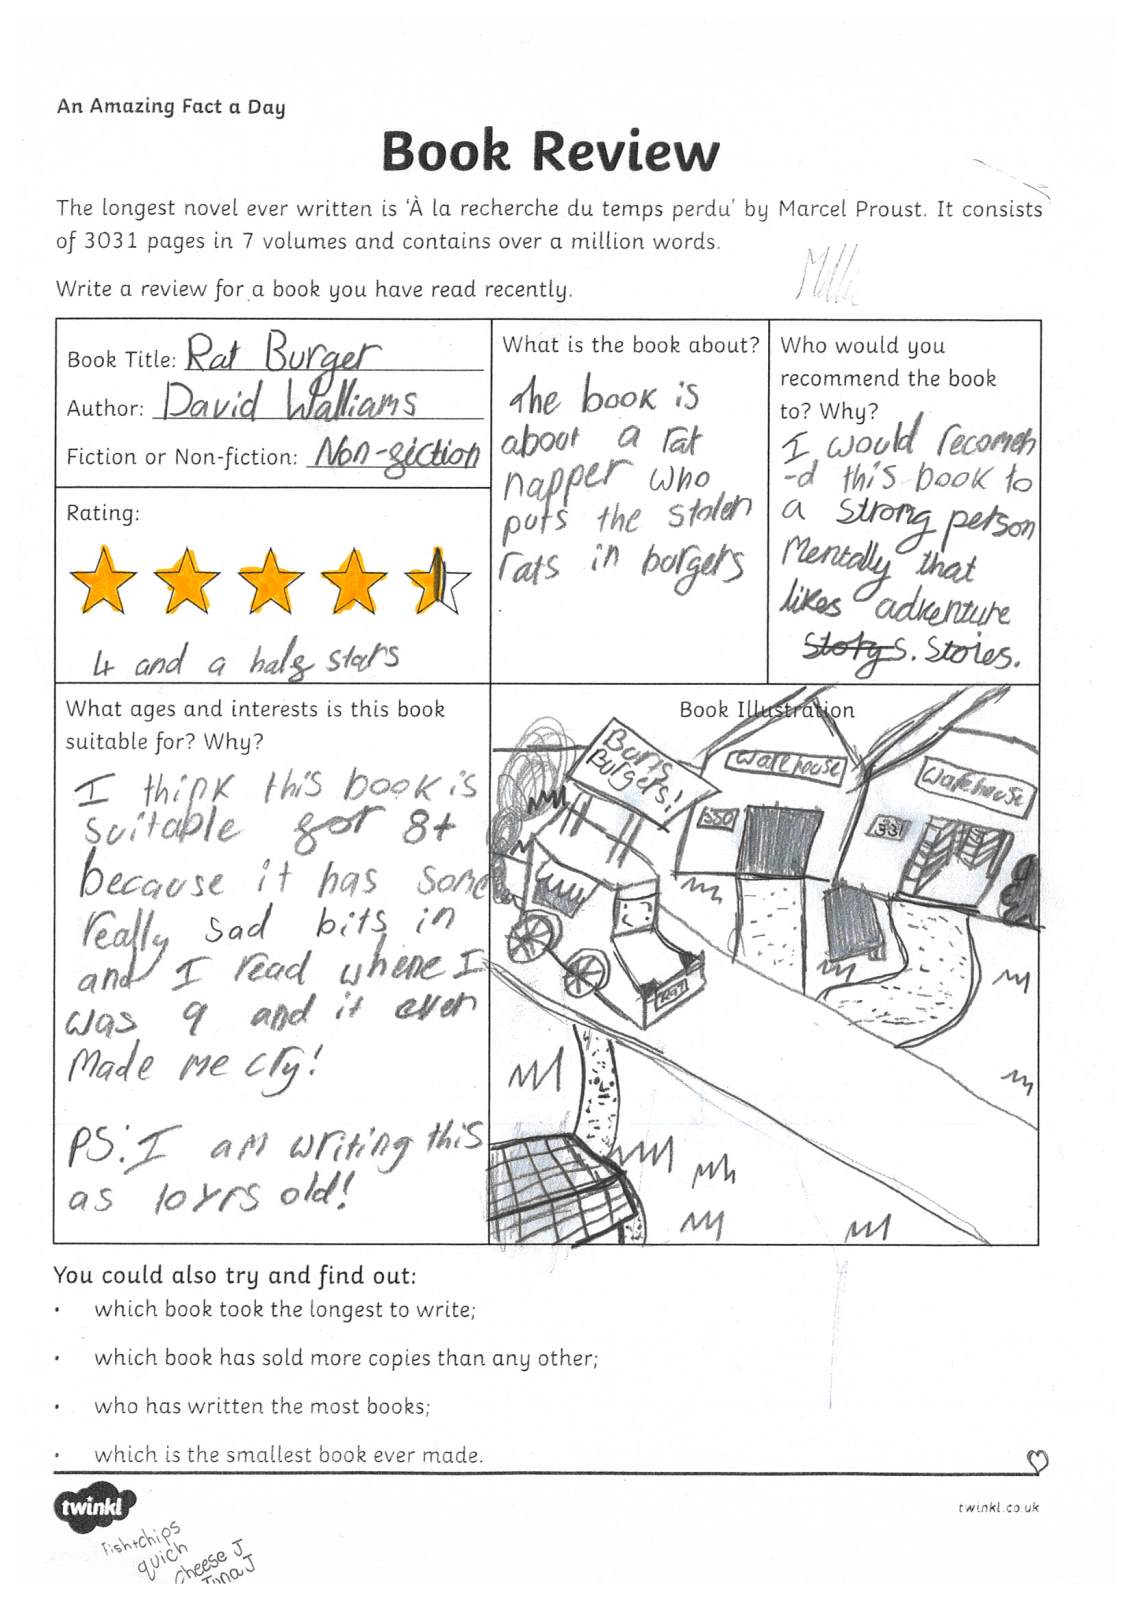 An Amazing Fact a Day
Book Review
The longest novel ever written is ‘À la recherche du temps perdu’ by Marcel Proust. It consists
of 3031 pages in 7 volumes and contains over a million words.
Write a review for a book you have read recently.
Book Title: Rat Burger
Author: David Walliams
Fiction or Non-fiction: Non-fiction
Rating:
4 and a half stars
What is the book about?
the book is
about a rat
napper who
puts the stolen
rats in burgers
Who would you
recommend the book
to? Why?
I would recomen
-d this book to
a strong person
Mentally that
likes adventure
Storys. Stoies.
What ages and interests is this book
suitable for? Why?
I think this book is
suitable for 8+
because it has some
really sad bits in
and I read whene I
was 9 and it even
Made me cry!
PS: I am writing this
as 10 yrs old!
Book Illustration
Burts
Burgers!
Warehouse
Warehouse
330
331
Rat
You could also try and find out:
• which book took the longest to write;
• which book has sold more copies than any other;
• who has written the most books;
• which is the smallest book ever made.
twinkl
twinkl.co.uk
Fish+chips
quich
cheese J
Tuna J